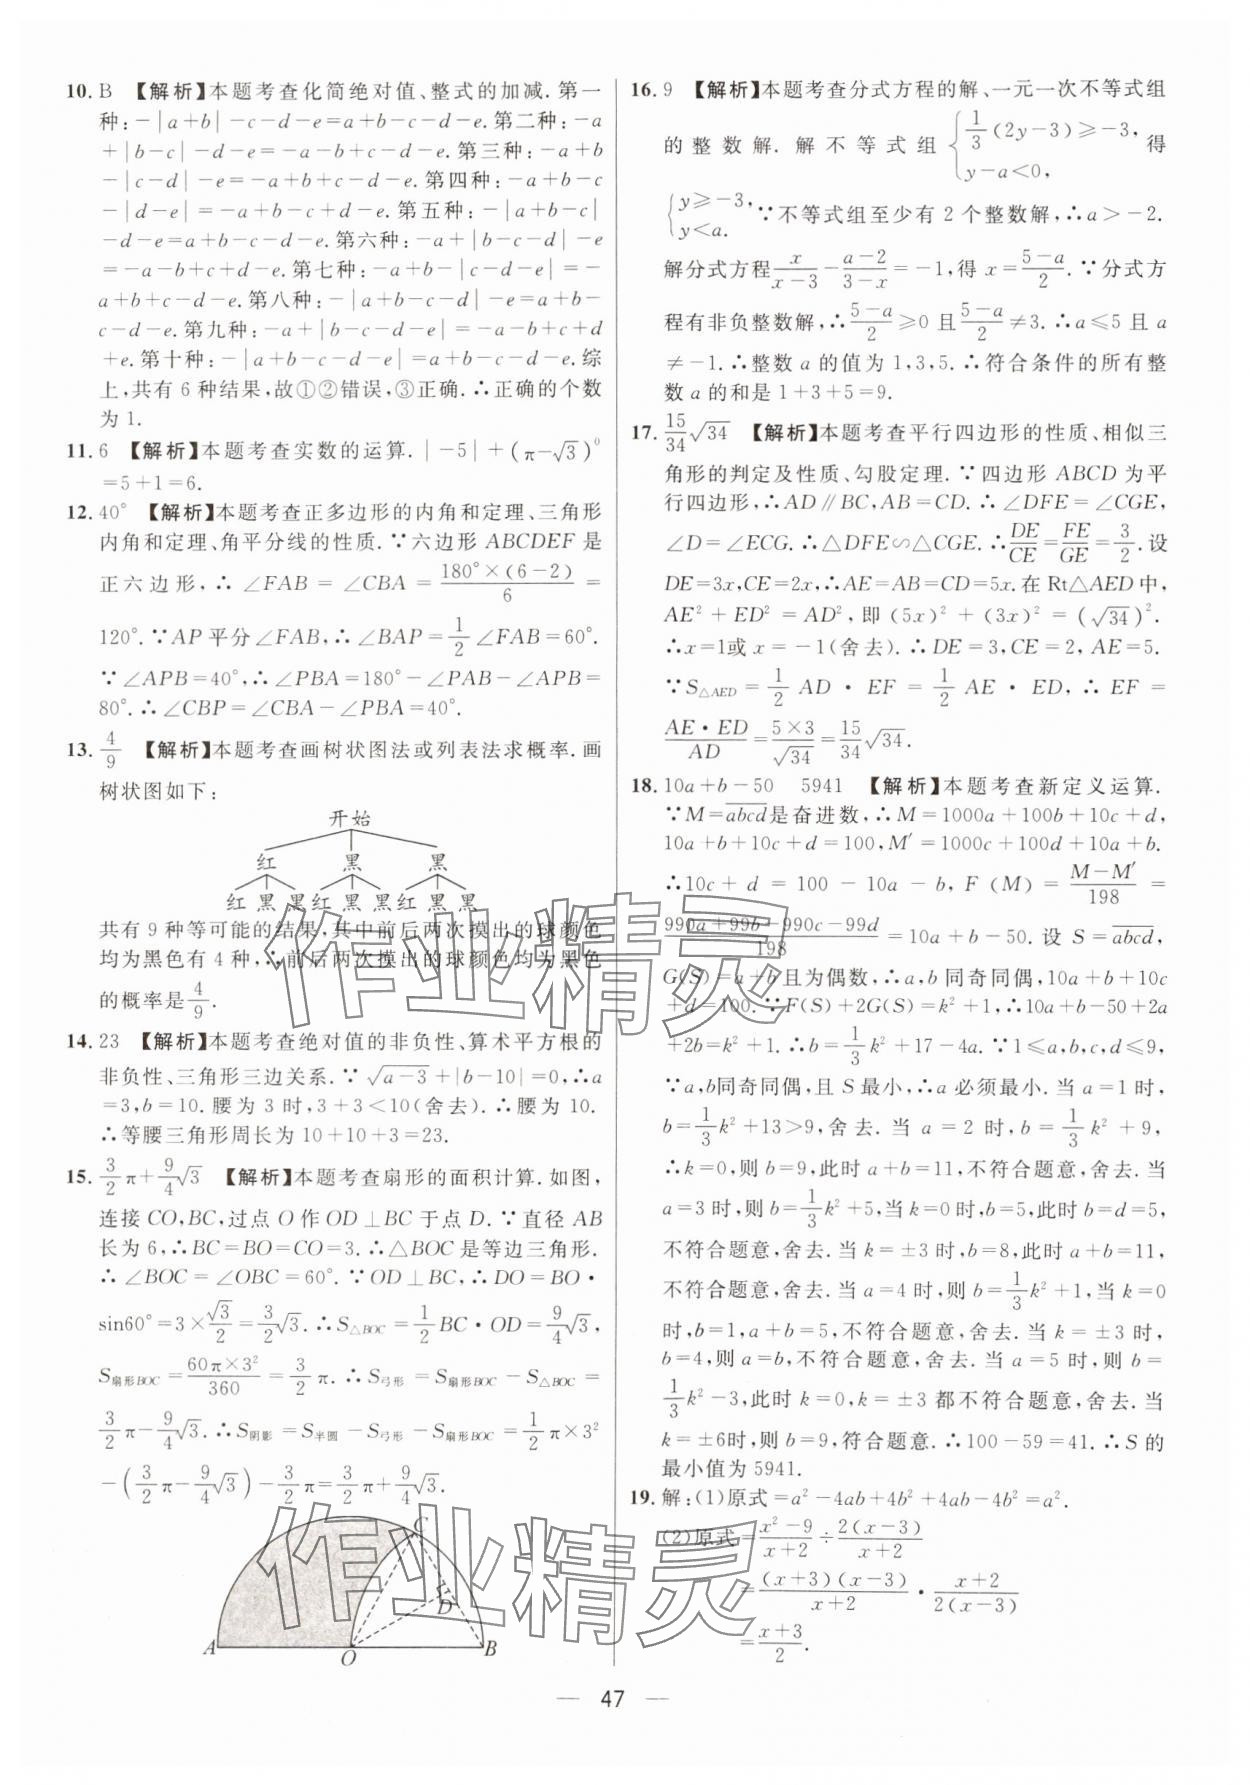 10. B 【解析】本题考查化简绝对值、整式的加减. 第一
种:-|a+b|-c-d-e=a+b-c-d-e. 第二种:-a
+|b-c|-d-e=-a-b+c-d-e. 第三种:-a+b
-|c-d|-e=-a+b+c-d-e. 第四种:-a+b-c
-|d-e|=-a+b-c+d-e. 第五种:-|a+b-c|
-d-e=a+b-c-d-e. 第六种:-a+|b-c-d|-e
=-a-b+c+d-e. 第七种:-a+b-|c-d-e|=-
a+b+c-d-e. 第八种:-|a+b-c-d|-e=a+b-
c-d-e. 第九种:-a+|b-c-d-e|=-a-b+c+d
+e. 第十种:-|a+b-c-d-e|=a+b-c-d-e. 综
上,共有 6 种结果,故①②错误,③正确. ∴正确的个数
为 1.
11. 6 【解析】本题考查实数的运算. |-5|+(π-√3)⁰
=5+1=6.
12. 40° 【解析】本题考查正多边形的内角和定理、三角形
内角和定理、角平分线的性质. ∵六边形 ABCDEF 是
正六边形,∴∠FAB=∠CBA=180°×(6-2)/6=
120°. ∵AP 平分∠FAB,∴∠BAP=1/2∠FAB=60°.
∵∠APB=40°,∴∠PBA=180°-∠PAB-∠APB=
80°. ∴∠CBP=∠CBA-∠PBA=40°.
13. 4/9 【解析】本题考查画树状图法或列表法求概率. 画
树状图如下:
开始
红 黑 黑
红 黑 黑 红 黑 黑 红 黑 黑
共有 9 种等可能的结果,其中前后两次摸出的球颜色
均为黑色有 4 种,∴前后两次摸出的球颜色均为黑色
的概率是4/9.
14. 23 【解析】本题考查绝对值的非负性、算术平方根的
非负性、三角形三边关系. ∵√(a-3)+|b-10|=0,∴a
=3,b=10. 腰为 3 时,3+3<10(舍去). ∴腰为 10.
∴等腰三角形周长为 10+10+3=23.
15. 3/2π+9/4√3 【解析】本题考查扇形的面积计算. 如图,
连接 CO,BC,过点 O 作 OD⊥BC 于点 D. ∵直径 AB
长为 6,∴BC=BO=CO=3. ∴△BOC 是等边三角形.
∴∠BOC=∠OBC=60°. ∵OD⊥BC,∴DO=BO·
sin60°=3×√3/2=3/2√3. ∴S△BOC=1/2BC·OD=9/4√3,
S扇形BOC=60π×3²/360=3/2π. ∴S弓形=S扇形BOC-S△BOC=
3/2π-9/4√3. ∴S阴影=S半圆-S弓形-S扇形BOC=1/2π×3²
-(3/2π-9/4√3)-3/2π=3/2π+9/4√3.
C
D
A O B
16. 9 【解析】本题考查分式方程的解、一元一次不等式组
的整数解. 解不等式组{1/3(2y-3)≥-3, y-a<0, 得
{y≥-3, y<a. ∵不等式组至少有 2 个整数解,∴a>-2.
解分式方程x/(x-3)-(a-2)/(3-x)=-1,得 x=(5-a)/2. ∵分式方
程有非负整数解,∴(5-a)/2≥0 且(5-a)/2≠3. ∴a≤5 且 a
≠-1. ∴整数 a 的值为 1,3,5. ∴符合条件的所有整
数 a 的和是 1+3+5=9.
17. 15/34√34 【解析】本题考查平行四边形的性质、相似三
角形的判定及性质、勾股定理. ∵四边形 ABCD 为平
行四边形,∴AD∥BC,AB=CD. ∴∠DFE=∠CGE,
∠D=∠ECG. ∴△DFE∽△CGE. ∴DE/CE=FE/GE=3/2. 设
DE=3x,CE=2x,∴AE=AB=CD=5x. 在 Rt△AED 中,
AE²+ED²=AD²,即(5x)²+(3x)²=(√34)².
∴x=1或 x=-1(舍去). ∴DE=3,CE=2,AE=5.
∵S△AED=1/2AD·EF=1/2AE·ED,∴EF=
AE·ED/AD=5×3/√34=15/34√34.
18. 10a+b-50 5941 【解析】本题考查新定义运算.
∵M=a̅b̅c̅d̅是奋进数,∴M=1000a+100b+10c+d,
10a+b+10c+d=100,M′=1000c+100d+10a+b.
∴10c+d=100-10a-b,F(M)=(M-M′)/198=
(990a+99b-990c-99d)/198=10a+b-50. 设 S=a̅b̅c̅d̅,
G(S)=a+b且为偶数,∴a,b 同奇同偶,10a+b+10c
+d=100. ∵F(S)+2G(S)=k²+1,∴10a+b-50+2a
+2b=k²+1. ∴b=1/3k²+17-4a. ∵1≤a,b,c,d≤9,
∵a,b同奇同偶,且 S 最小,∴a 必须最小. 当 a=1 时,
b=1/3k²+13>9,舍去. 当 a=2 时,b=1/3k²+9,
∴k=0,则 b=9,此时 a+b=11,不符合题意,舍去. 当
a=3 时,则 b=1/3k²+5,当 k=0时,b=5,此时 b=d=5,
不符合题意,舍去. 当 k=±3时,b=8,此时 a+b=11,
不符合题意,舍去. 当 a=4 时,则 b=1/3k²+1,当 k=0
时,b=1,a+b=5,不符合题意,舍去. 当 k=±3 时,
b=4,则 a=b,不符合题意,舍去. 当 a=5 时,则 b=
1/3k²-3,此时 k=0,k=±3 都不符合题意,舍去. 当
k=±6时,b=9,符合题意. ∴100-59=41. ∴S 的
最小值为 5941.
19. 解:(1)原式=a²-4ab+4b²+4ab-4b²=a².
(2)原式=(x²-9)/(x+2)÷2(x-3)/(x+2)
=(x+3)(x-3)/(x+2)·(x+2)/2(x-3)
=(x+3)/2.
作业精灵
作业精灵
— 47 —